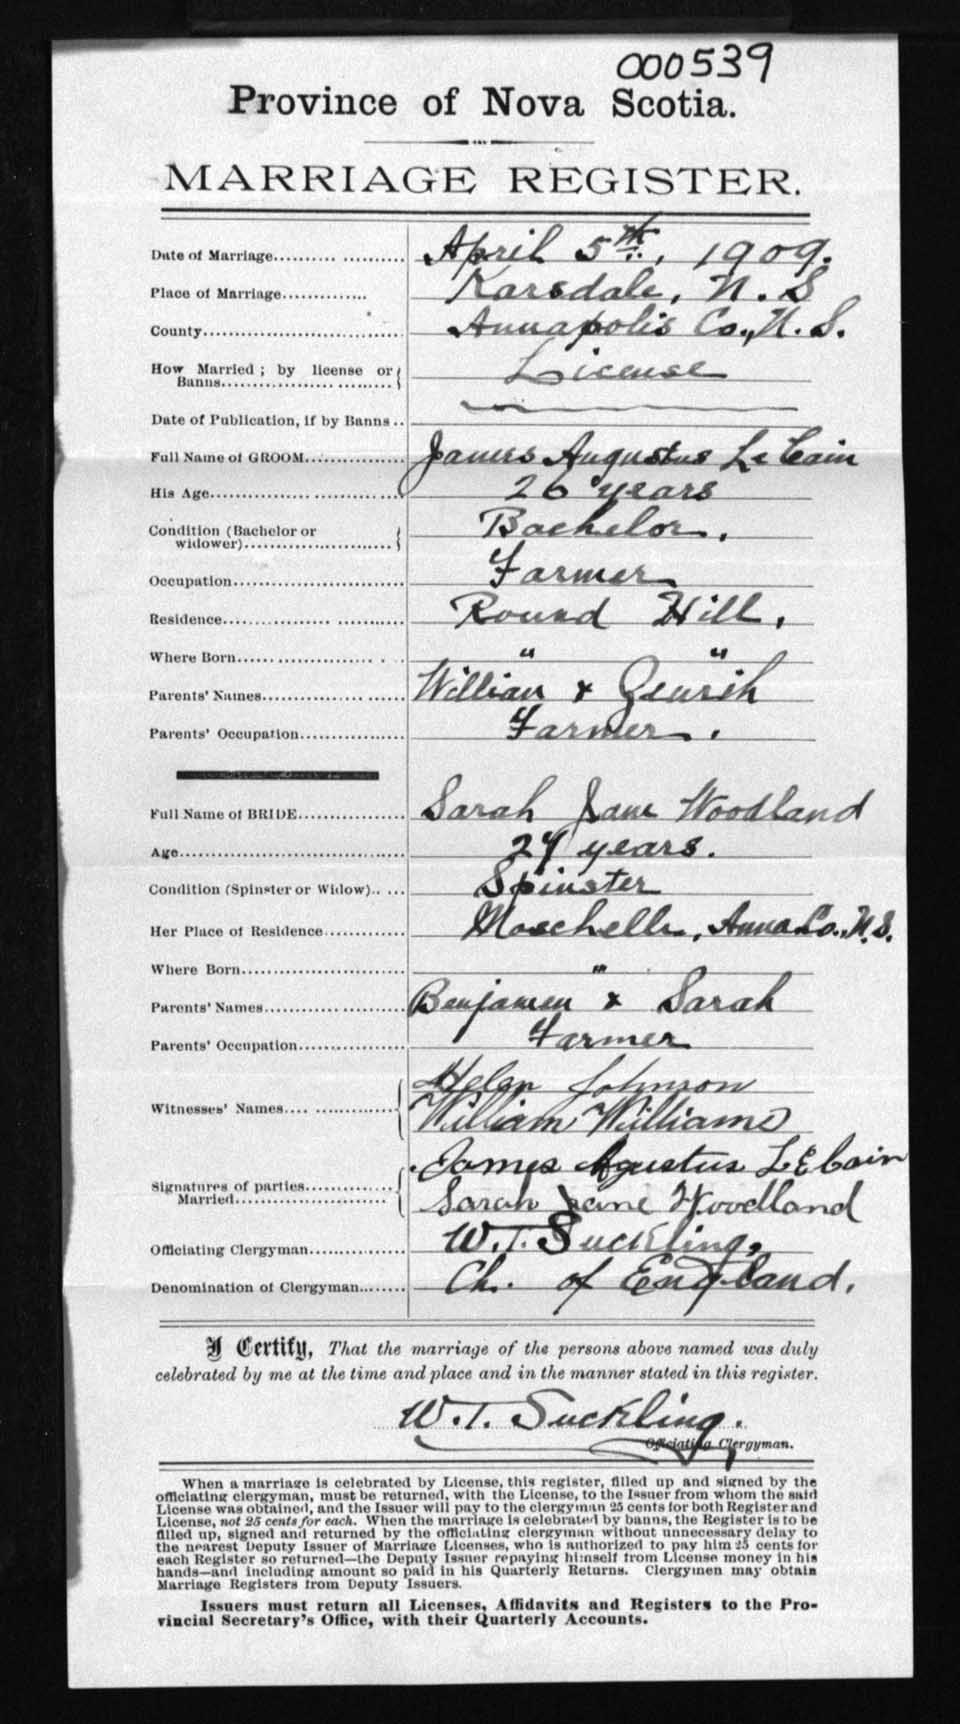 000539
Province of Nova Scotia.
MARRIAGE REGISTER.
Date of Marriage.......... ........... April 5th, 1909.
Place of Marriage.............. Karsdale, N. S
County.............................. Annapolis Co., N. S.
How Married ; by license or License
Banns.................. ..........
Date of Publication, if by Banns ..
Full Name of GROOM............... James Augustus Le Cain
His Age................ ................ 26 years
Condition (Bachelor or Bachelor.
widower)..........................
Occupation............................. Farmer
Residence.................. ........... Round Hill.
Where Born....................... . .. " "
Parents' Names.................. ...... William &
Parents' Occupation.................. Farmer.
Full Name of BRIDE.................. Sarah Jane Woodland
Age...................................... years.
Condition (Spinster or Widow).. ... Spinster
Her Place of Residence............. Moschelle, Anna. Co., N. S.
Where Born............................ "
Parents' Names............. .......... Benjamen & Sarah
Parents' Occupation.................. Farmer
Helen Johnson
Witnesses' Names.... .............. William Williams
James Agustus LeCain
Signatures of parties.................
Married.......................... Sarah Jane Woodland
Officiating Clergyman................ W. T. Suckling,
Denomination of Clergyman........ Ch. of England.
I Certify, That the marriage of the persons above named was duly
celebrated by me at the time and place and in the manner stated in this register.
W. T. Suckling.
Officiating Clergyman.
When a marriage is celebrated by License, this register, filled up and signed by the
officiating clergyman, must be returned, with the License, to the Issuer from whom the said
License was obtained, and the Issuer will pay to the clergyman 25 cents for both Register and
License, not 25 cents for each. When the marriage is celebrated by banns, the Register is to be
filled up, signed and returned by the officiating clergyman without unnecessary delay to
the nearest Deputy Issuer of Marriage Licenses, who is authorized to pay him 25 cents for
each Register so returned—the Deputy Issuer repaying himself from License money in his
hands—and including amount so paid in his Quarterly Returns. Clergymen may obtain
Marriage Registers from Deputy Issuers.
Issuers must return all Licenses, Affidavits and Registers to the Pro-
vincial Secretary's Office, with their Quarterly Accounts.